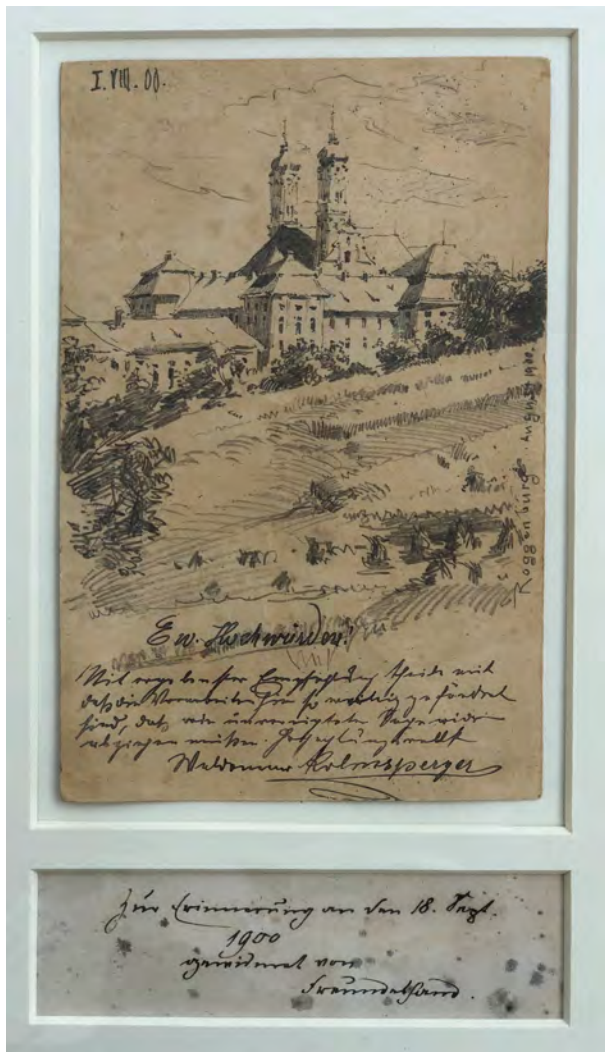 I. VIII. 00.
Roggenburg. August 1900.
Ew. Hochwürden!
Mit ergebenster Empfehlung theile mit
daß die Vorarbeiten hier so wenig gefördert
sind, daß wir unverrichteter Sache wieder
abziehen mußten. Hochachtungsvollst
Waldemar Kolmsperger
Zur Erinnerung an den 18. Sept.
1900
gewidmet von
Freundeshand.